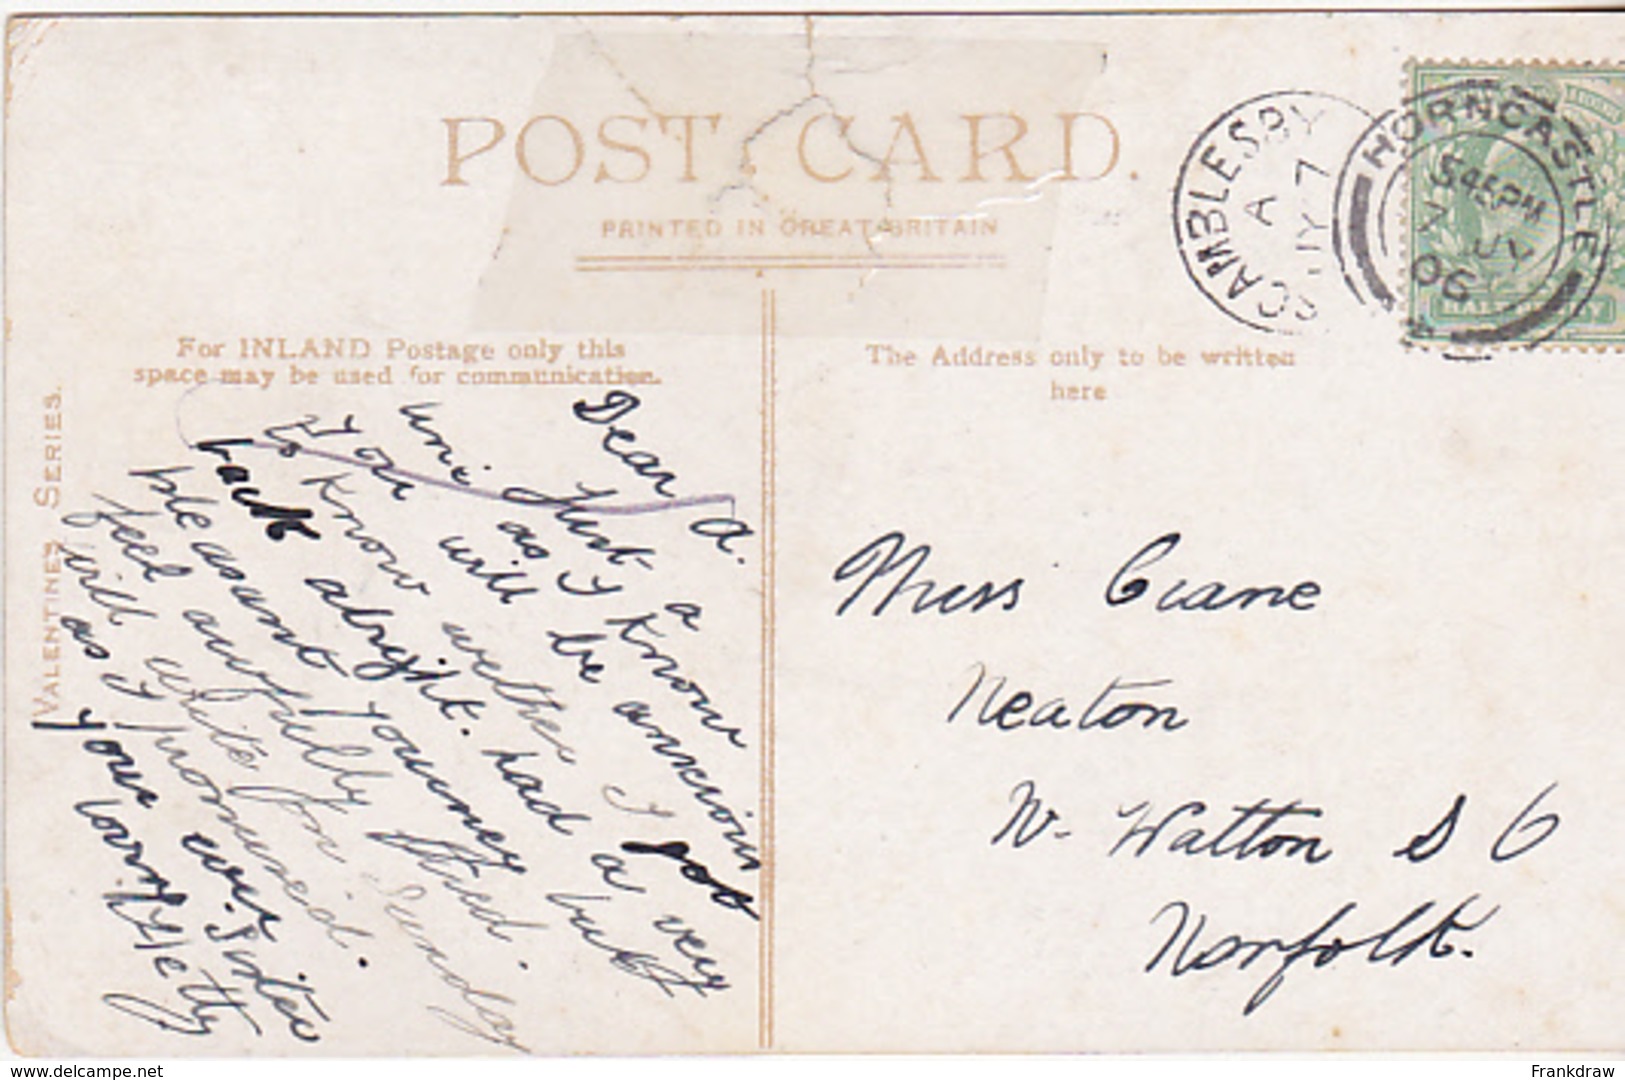 POST CARD.
PRINTED IN GREAT BRITAIN
For INLAND Postage only this
space may be used for communication.
The Address only to be written
here
VALENTINES SERIES.
SCAMBLESBY
A
JY 7
HORNCASTLE
545PM
JUL
06
HALFPENNY
Dear A.
Just a
line as I know
you will be anxious
to know wether I got
back alright. had a very
pleasant journey but
feel awfully tired.
will write on Sunday
as I promised.
Your ever
loving Sister
Hetty
Miss Crane
Neaton
Nr. Watton S O
Norfolk.
www.delcampe.net
Frankdraw